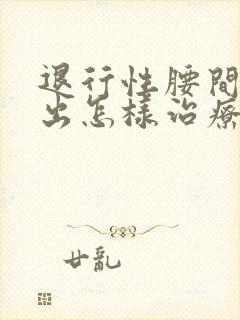 退行性腰間
出怎樣治療
廿亂